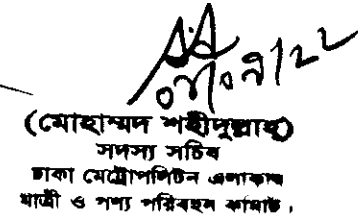 ০৮/০৭/২২
(মোহাম্মদ শহীদুল্লাহ)
সদস্য সচিব
ঢাকা মেট্রোপলিটন এলাকার
যাত্রী ও পণ্য পরিবহন কমিটি।